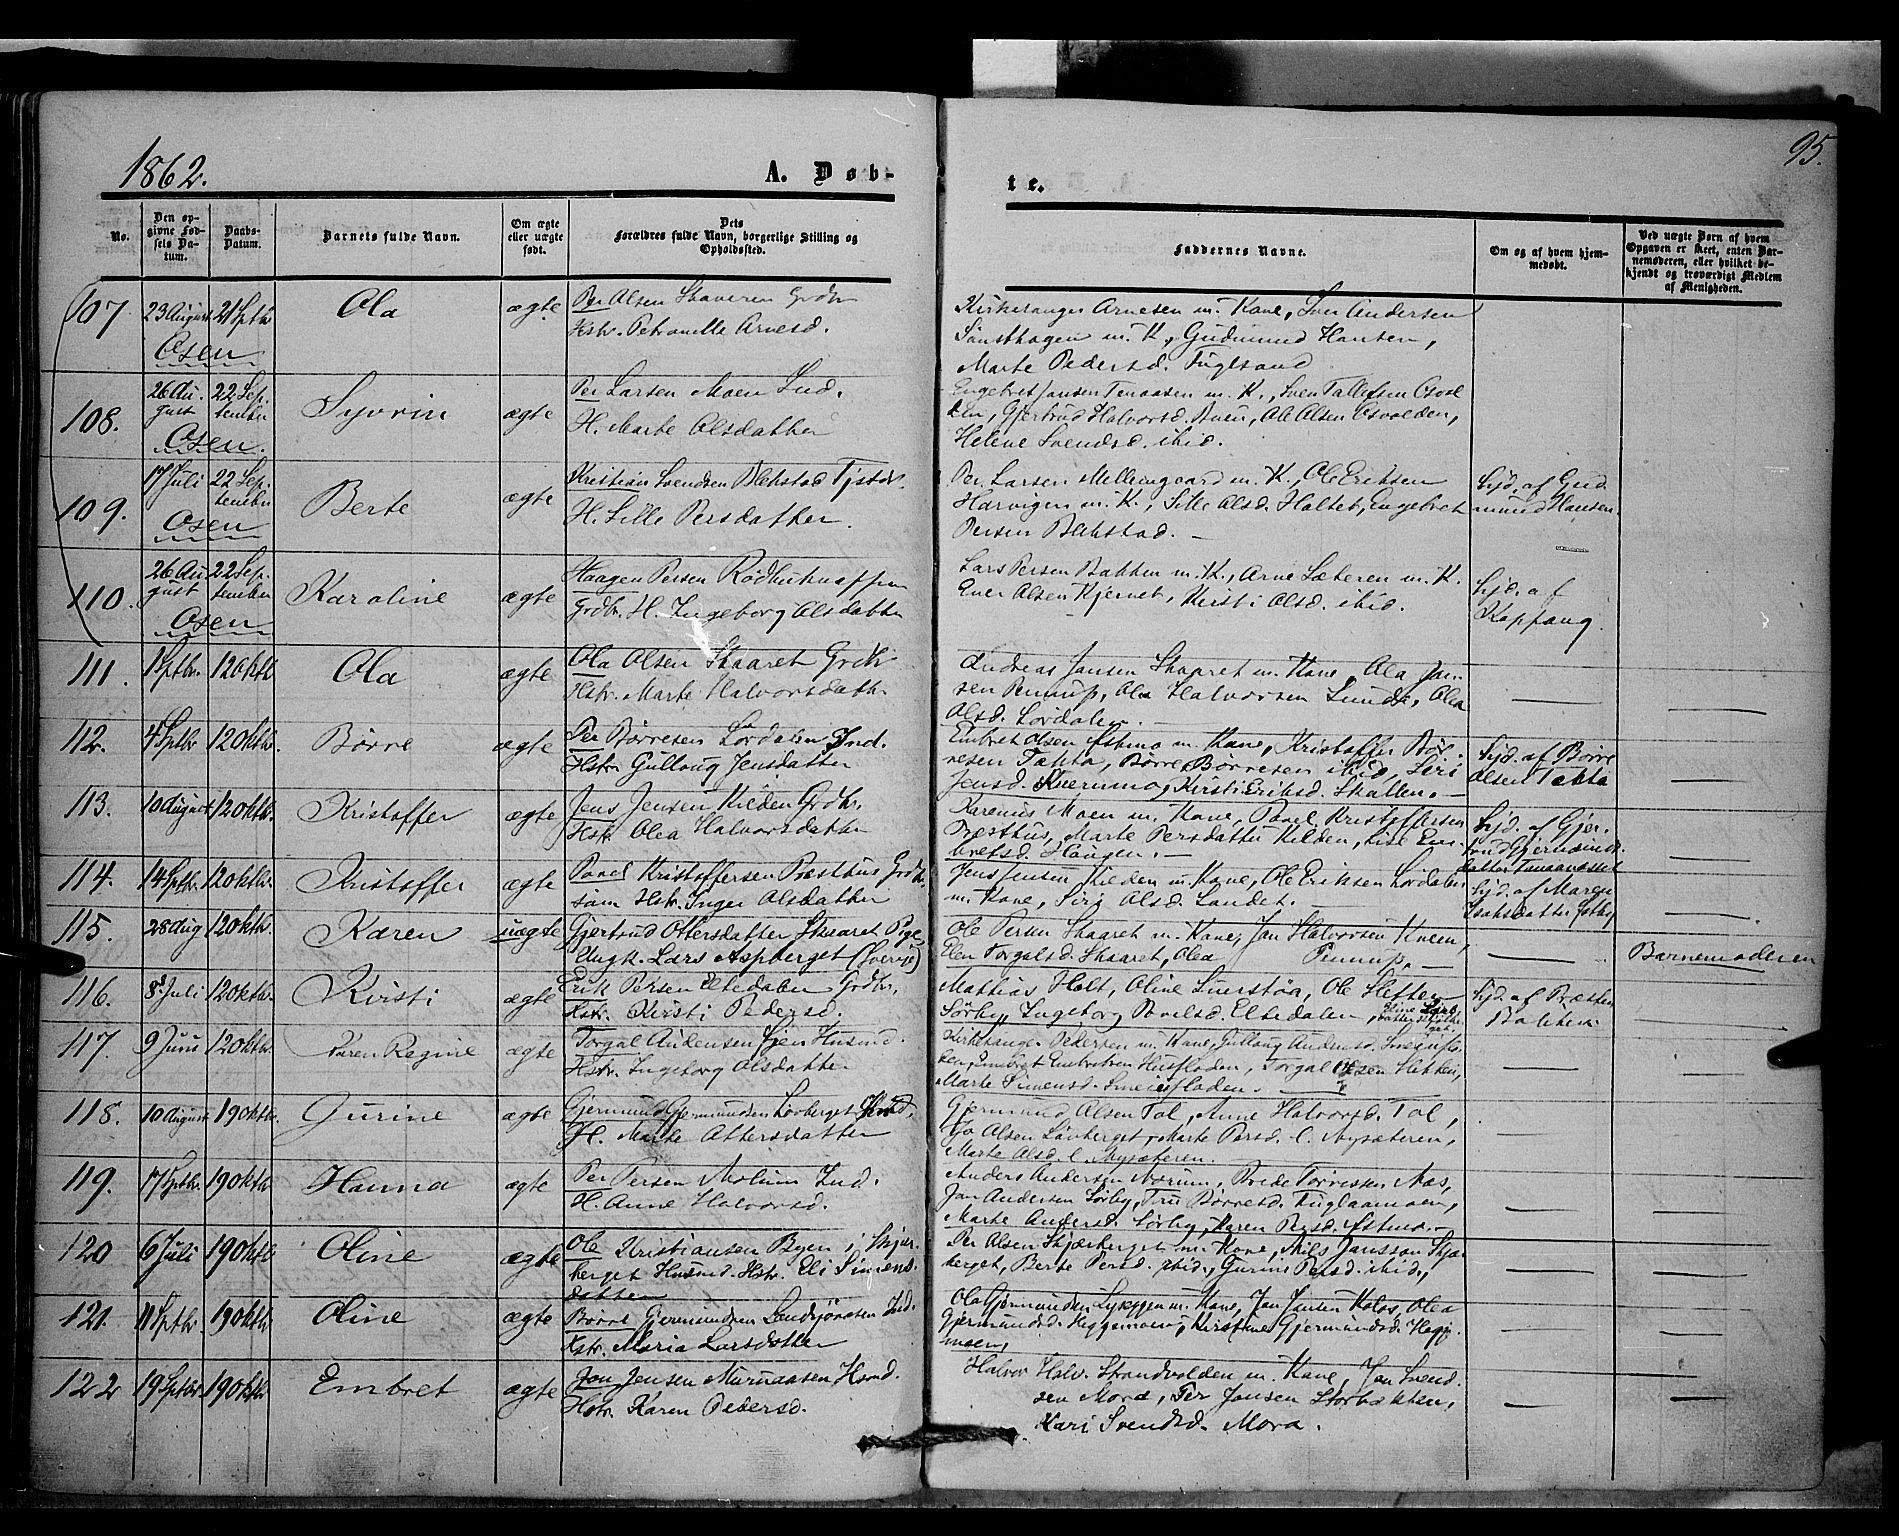 1862.
A. Døb-
te.
95.
No.
Den op-
givne Fød-
sels Da-
tum.
Daabs-
Datum.
Barnets fulde Navn.
Om ægte
eller uægte
født.
Dets
Forældres fulde Navn, borgerlige Stilling og
Opholdssted.
Faddernes Navne.
Om og af hvem hjem-
medøbt.
Ved uægte Børn af hvem
Opgaven er skeet, enten Bar-
nemoderen, eller hvilket be-
kjendt og troværdigt Medlem
af Menigheden.
107 23 August 21 Septbr Ola ægte Per Olsen Skaveren Grdbr
Osen Hstr. Petronelle Arnesd.
Kirkesanger Arnesen m. Kone, Sven Andersen
Sønsthagen m. K, Gudmund Hansen,
Marte Pedersd. Fuglsand
108. 26 Au- 22 Sep- Syvrin ægte Per Larsen Moen Ind.
gust tember H. Marte Olsdatter
Osen.
Engebret Jansen Tenaasen m. K., Sven Tallefsen Osvol
den, Gjertrud Halvorsd. Moen, Ole Olsen Osvolden,
Helene Svendsd. ibid.
109. 17 Juli 22 Sep- Berte ægte Kristian Svendsen Blekstad
Osen tember H. Sille Persdatter.
Per Larsen Mellemgaard m. K., Ole Eriksen
Harvigen m. K., Sille Olsd. Haltet, Engebret
Persen Blekstad. —
Hjd. af Gud
mund Hansen
110. 26 Au- 22 Sep- Karoline ægte Haagen Persen Rødhuknappen
gust tember Grdbr. H. Ingeborg Olsdatter
Osen
Lars Persen Bakken m. K., Arne Sæteren m. K.
Even Olsen Kjernet, Kirsti Olsd. ibid.
Hjd. af
Kopfang.
111. 1 Septbr. 12 Oktb Ola ægte Ola Olsen Skaaret Grdbr
Hstr. Marte Halvorsdatter
Andreas Jansen Skaaret m. Kone, Ola Jan-
sen Penrup, Ola Halvorsen Lunde, Olea
Olsd. Lørdalen. —
112. 4 Septbr 12 Oktbr. Børre ægte Per Børresen Lørdalen Ind.
Hstr. Gullaug Jensdatter
Embret Olsen Østmo m. Kone, Kristoffer Bør-
resen Takta, Børre Børresen ibid, Siri
Jensd. Kvernmo, Kirsti Eriksd. Skallen. —
Hjd. af Børre
Olsen Takta
113. 10 August 12 Oktbr. Kristoffer ægte Jens Jensen Kilden Grdbr.
Hstr. Olea Halvorsdatter
Karenus Moen m. Kone, Povel Kristoffersen
Præsthus, Marte Persdatter Kilden, Lise Em-
bretsd. Haugen. —
Hjd. af Gjer-
trud Gjermunds-
datter Tunaasset
114. 14 Septbr. 12 Oktbr. Kristoffer ægte Povel Kristoffersen Præsthus Grdb.
sam Hstr. Inger Olsdatter
Jens Jensen Kilden m. Kone, Ole Eriksen Lørdalen
m. Kone, Siri Olsd. Landet. —
Hjd. af Maren
Isaksdatter Østby
115. 28 Aug 12 Oktbr. Karen uægte Gjertrud Ottersdatter Skaaret Pige
Ungk. Lars Aspberget (Sverige)
Ole Persen Skaaret m. Kone, Jan Halvorsen Kveen,
Elen Torgalsd. Skaaret, Olea Penrup. —
Barnemoderen
116. 8 Juli 12 Oktbr. Kirsti ægte Erik Persen Eltedalen Grdbr,
Hstr. Kirsti Pedersd.
Mathias Holt, Oline Lunstøa, Ole Sletten
Sørby, Ingeborg Povelsd. Eltedalen,
Hjd. af Præsten
Bakken.
117. 9 Juni 12 Oktbr Karen Regine ægte Torgal Andersen Husmd.
Hstr. Ingeborg Olsdatter
Kirkesanger Pedersen m. Kone, Gullaug Andersd.
Embret Embretsen Husfloden, Torgal Olsen Sletten,
Marte Simensd. Smeiesfloden.
118. 10 August 19 Oktbr. Gurine ægte Gjermund Gjermundsen Løvberget Husmd,
H. Marte Ottersdatter
Gjermund Olsen Tol, Anne Halvorsd. Tol,
Jo Olsen Løvberget, Marte Persd. l. Nysæteren,
Marte Olsd. l. Nysæteren.
119. 17 Septbr. 19 Oktbr. Hanna ægte Per Persen Molum Ind.
H. Anne Halvorsd.
Anders Andersen Norum, Brede Torresten Næs,
Jan Andersen Sørby, Siri Børresd. Fuglaamoen,
Marte Andersd. Sørby, Karen Persd. Østmo. —
120 6 Juli 19 Oktbr Oline ægte Ole Kristiansen Byen i Skjær-
berget Husmd. Hstr. Eli Simens-
datter
Per Olsen Skjærberget m. Kone, Nils Jansson Skjæ
berget, Berte Persd. ibid., Gurine Persd. ibid.,
121. 11 Septbr. 19 Oktbr Oline ægte Børre Gjermundsen Landsjøaasen Ind.
Hstr. Maria Larsdatter
Ola Gjermundsen Lykyggen m. Kone, Jan Jansen Kolos, Olea
Gjermundsd. Heggemoen, Kirstine Gjermundsd. Hegge-
moen,
122 19 Septbr. 19 Oktbr Embret ægte Jon Jensen Murnaasen Hsmd.
Hstr. Karen Pedersd.
Halvor Halv. Strandvolden m. Kone, Jon Svend
sen Mora, Per Jansen Storbækken,
Kari Svendsd. Mora.